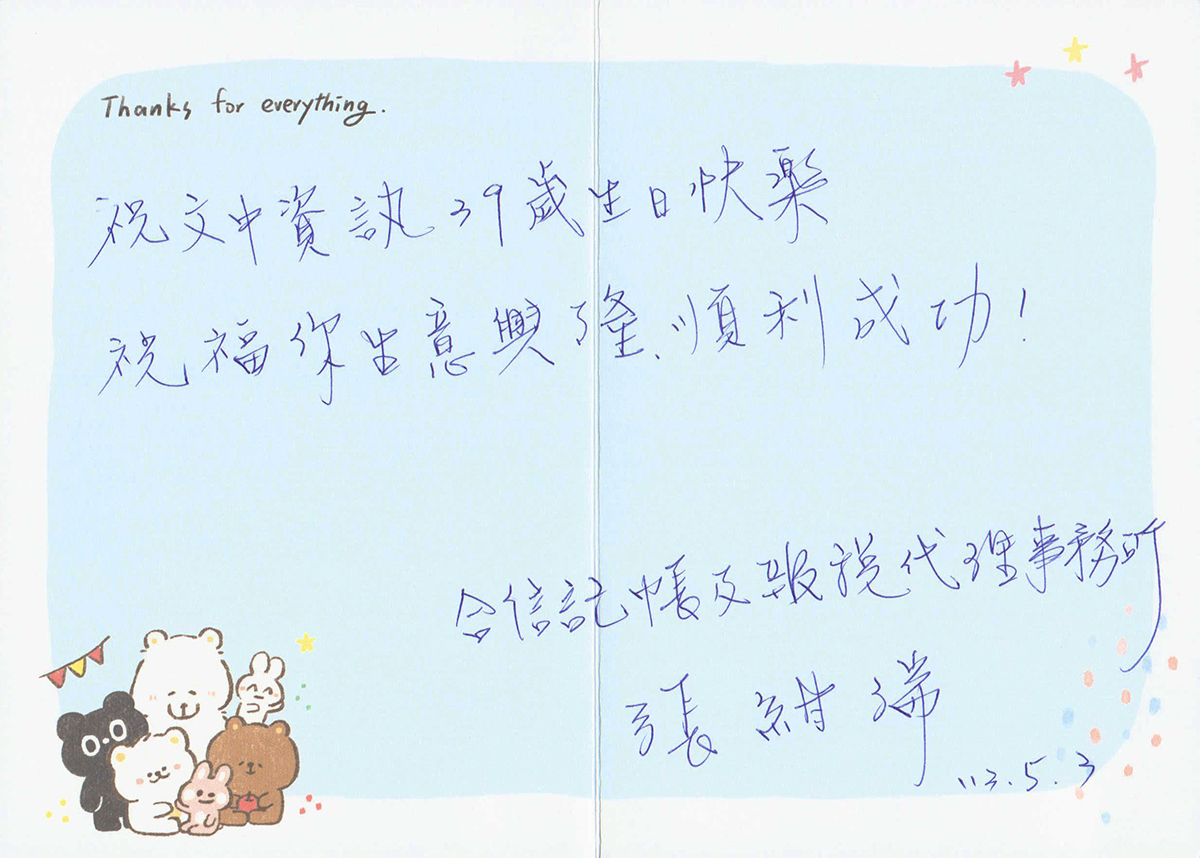 Thanks for everything.
祝文中資訊39歲生日快樂
祝福你生意興隆、順利成功!
合信記帳及報稅代理事務所
張紺瑞
113.5.3